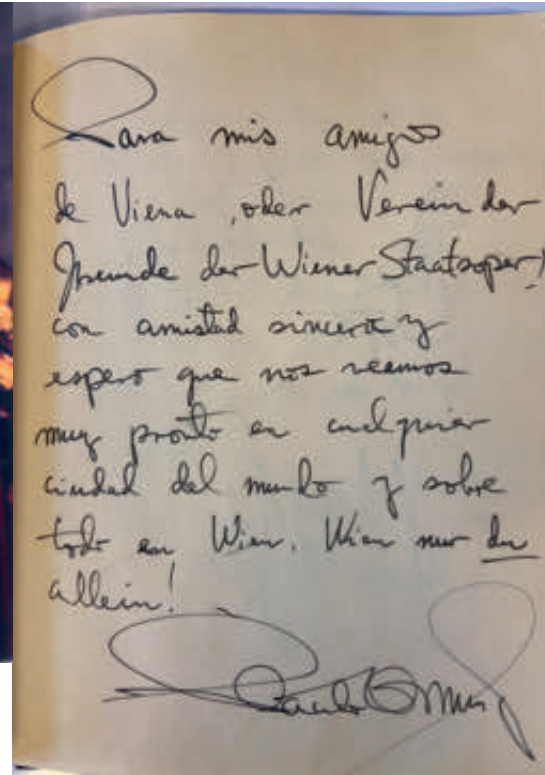 Para mis amigos
de Viena, oder Verein der
Freunde der Wiener Staatsoper!
con amistad sincera y
espero que nos veamos
muy pronto en cualquier
ciudad del mundo y sobre
todo en Wien. Wien nur du
allein!